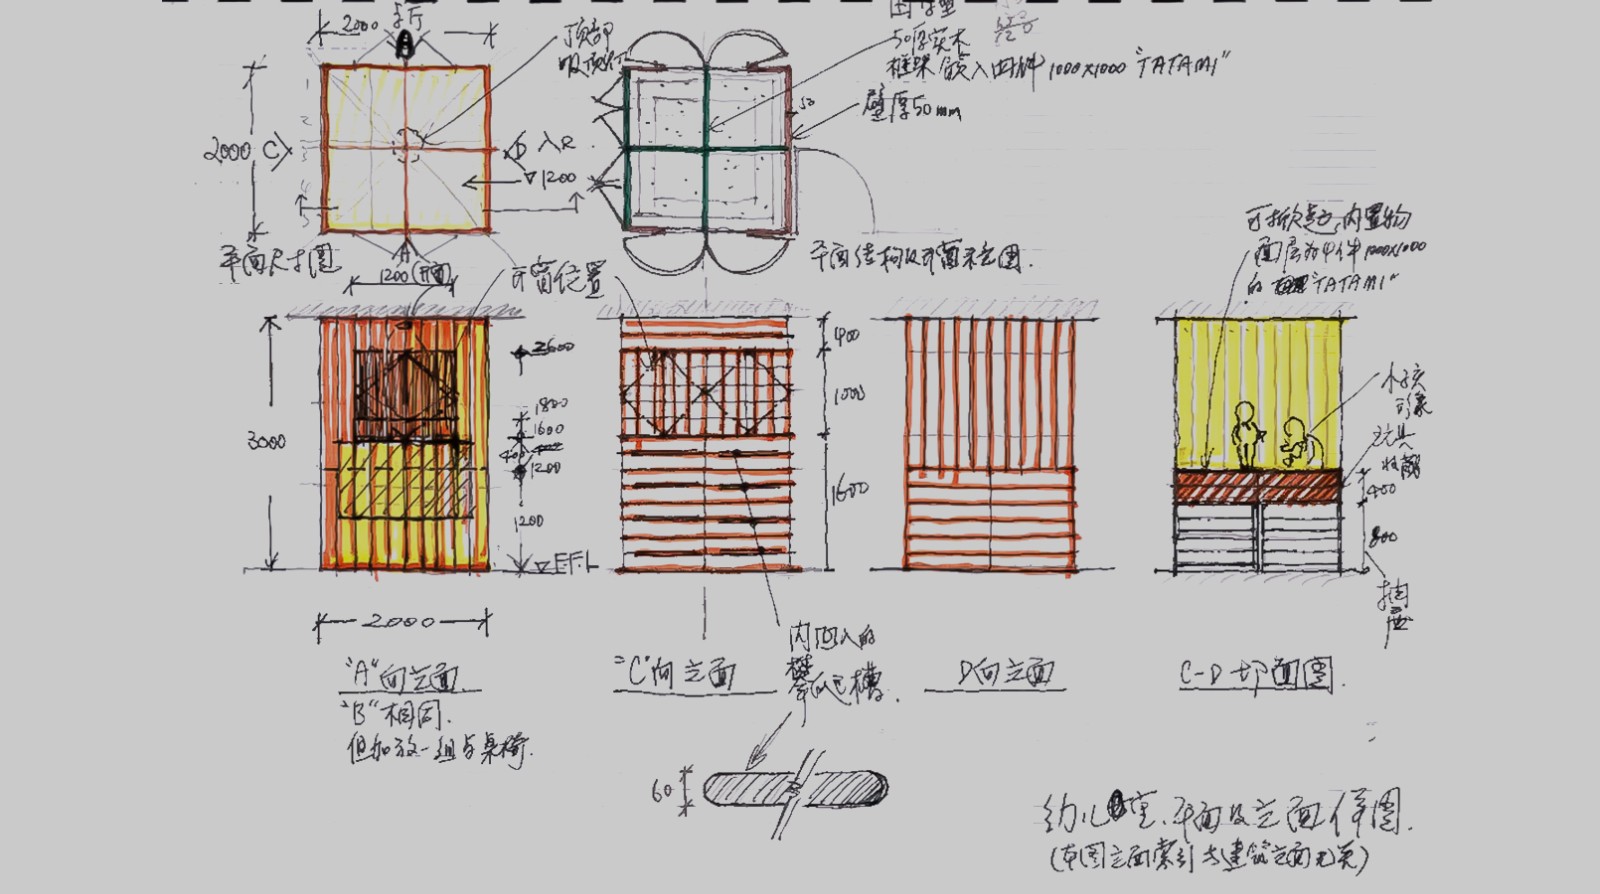 2000
顶部
吸顶灯
50厚实木
框架 嵌入四件 1000X1000 "TATAMI"
壁厚50mm
50
2000
C
D 入口
1200
1
2
3
4
5
A
平面尺寸图
平面结构及开窗示意图.
1200(开窗)
开窗位置
可掀起,内置物
面层为4件1000x1000
的 "TATAMI"
3000
2600
1800
1600
400
1200
1200
E.F.L
400
1000
1600
小孩
可象
玩具
收藏
400
800
抽屉
2000
内凹入的
攀爬凹槽.
"A"向立面
"B"相同.
但加放一组与桌椅.
"C"向立面
D向立面
C-D 切面图.
60
幼儿室.平面及立面详图.
(本图立面索引与建筑立面无关)